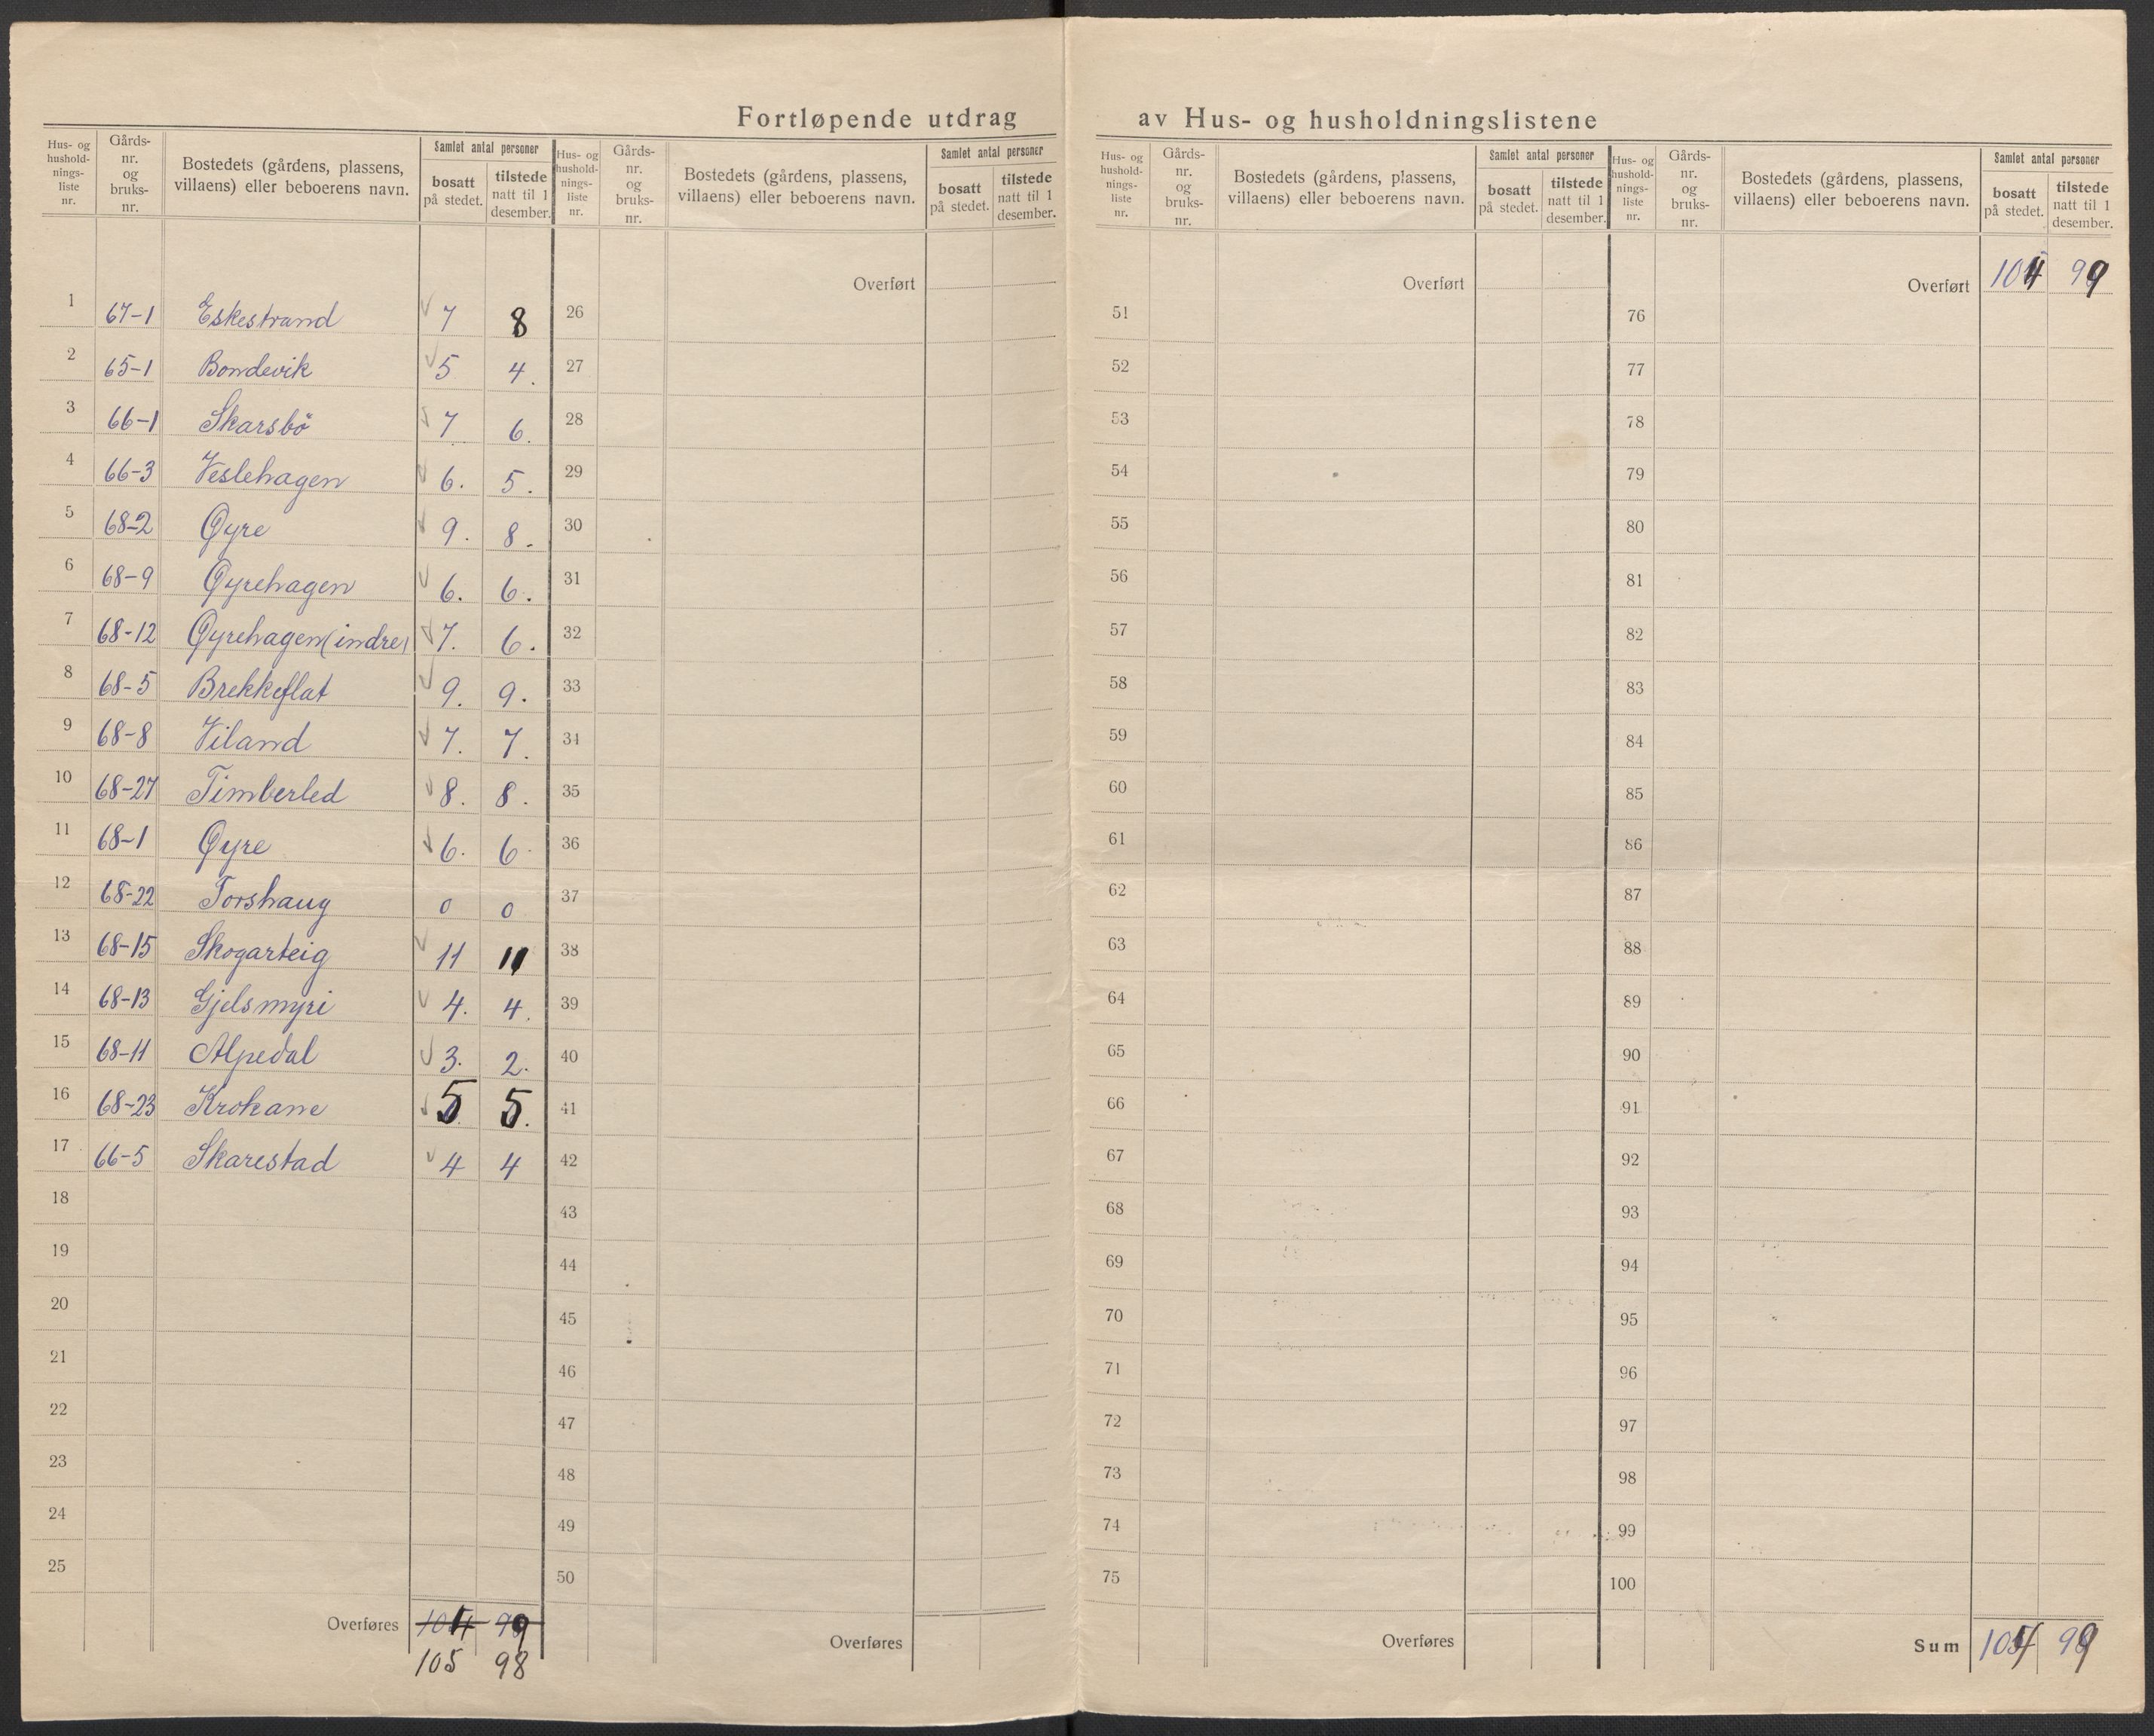 Fortløpende utdrag av Hus- og husholdningslistene
Hus- og hushold-nings-liste nr. Gårds-nr. og bruks-nr. Bostedets (gårdens, plassens, villaens) eller beboerens navn. Samlet antal personer bosatt på stedet. tilstede natt til 1 desember.
1 67-1 Eskestrand 7 8
2 65-1 Bondevik 5 4.
3 66-1 Skarsbö 7 6.
4 66-3 Veslehagen 6. 5.
5 68-2 Øyre 9. 8.
6 68-9 Øyrehagen 6. 6.
7 68-12 Øyrehagen (indre) 7. 6.
8 68-5 Brekkeflat 9. 9.
9 68-8 Viland 7. 7.
10 68-27 Timberled 8. 8.
11 68-1 Øyre 6. 6.
12 68-22 Torshaug 0 0
13 68-15 Skogarteig 11 11
14 68-13 Gjelsmyri 4. 4.
15 68-11 Alpedal 3. 2.
16 68-23 Krokane 5 5.
17 66-5 Skarestad 4 4
18
19
20
21
22
23
24
25
Overføres 104 99
105 98
Hus- og hushold-nings-liste nr. Gårds-nr. og bruks-nr. Bostedets (gårdens, plassens, villaens) eller beboerens navn. Samlet antal personer bosatt på stedet. tilstede natt til 1 desember.
Overført
26
27
28
29
30
31
32
33
34
35
36
37
38
39
40
41
42
43
44
45
46
47
48
49
50
Overføres
Hus- og hushold-nings-liste nr. Gårds-nr. og bruks-nr. Bostedets (gårdens, plassens, villaens) eller beboerens navn. Samlet antal personer bosatt på stedet. tilstede natt til 1 desember.
Overført
51
52
53
54
55
56
57
58
59
60
61
62
63
64
65
66
67
68
69
70
71
72
73
74
75
Overføres
Hus- og hushold-nings-liste nr. Gårds-nr. og bruks-nr. Bostedets (gårdens, plassens, villaens) eller beboerens navn. Samlet antal personer bosatt på stedet. tilstede natt til 1 desember.
Overført 104 99
76
77
78
79
80
81
82
83
84
85
86
87
88
89
90
91
92
93
94
95
96
97
98
99
100
Sum 104 99